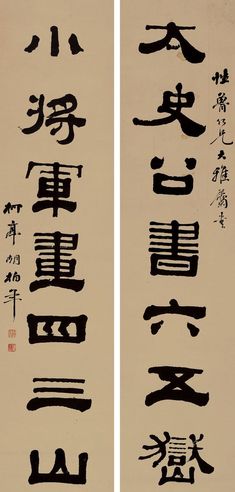 太史公書六五嶽
魯仁兄大雅屬
小將軍畫四三山
柯亭胡柏年